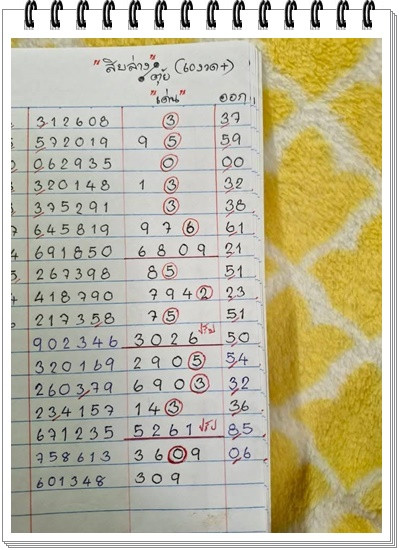 "สิบล่าง" (60งวด+)
ตุ้ย
"เด่น" ออก
312608 3 37
572019 9 5 59
062935 0 00
320148 1 3 32
375291 3 38
645819 9 7 6 61
691850 6 8 0 9 21
267398 8 5 51
418790 7 9 4 2 23
217358 7 5 51
902346 3 0 2 6 ปรับ 50
320169 2 9 0 5 54
260379 6 9 0 3 32
234157 1 4 3 36
671235 5 2 6 1 ปรับ 85
758613 3 6 0 9 06
601348 3 0 9